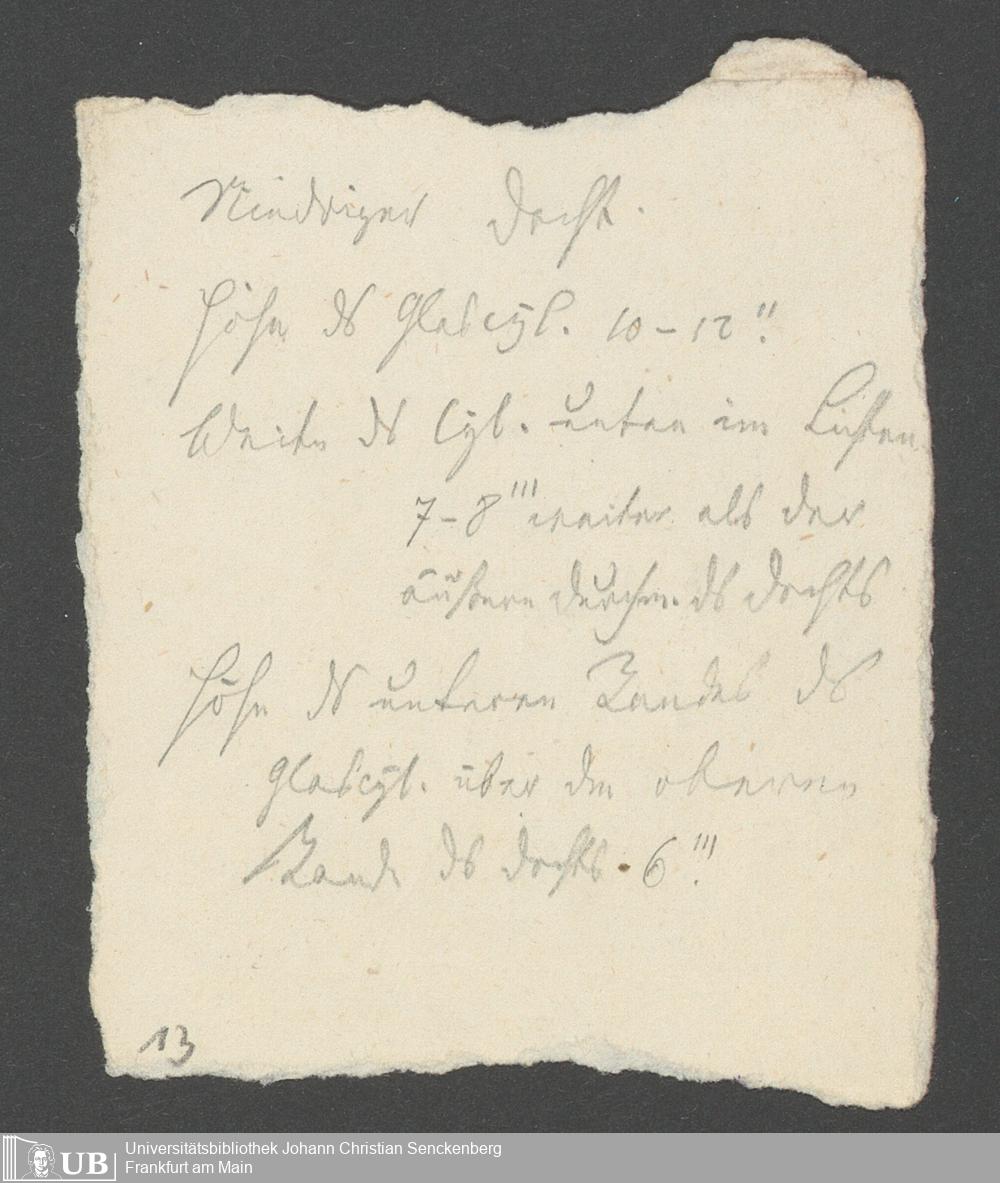 Niedriger Docht.
Höhe ds Glascyl. 10–12''.
Weite ds Cyl. unten im Lichten
7–8''' weiter als der
äußere Durchm. ds Dochts
Höhe ds unteren Randes ds
Glascyl. über dem oberen
Rande ds Dochts. 6'''.
13
Universitätsbibliothek Johann Christian Senckenberg
Frankfurt am Main
UB